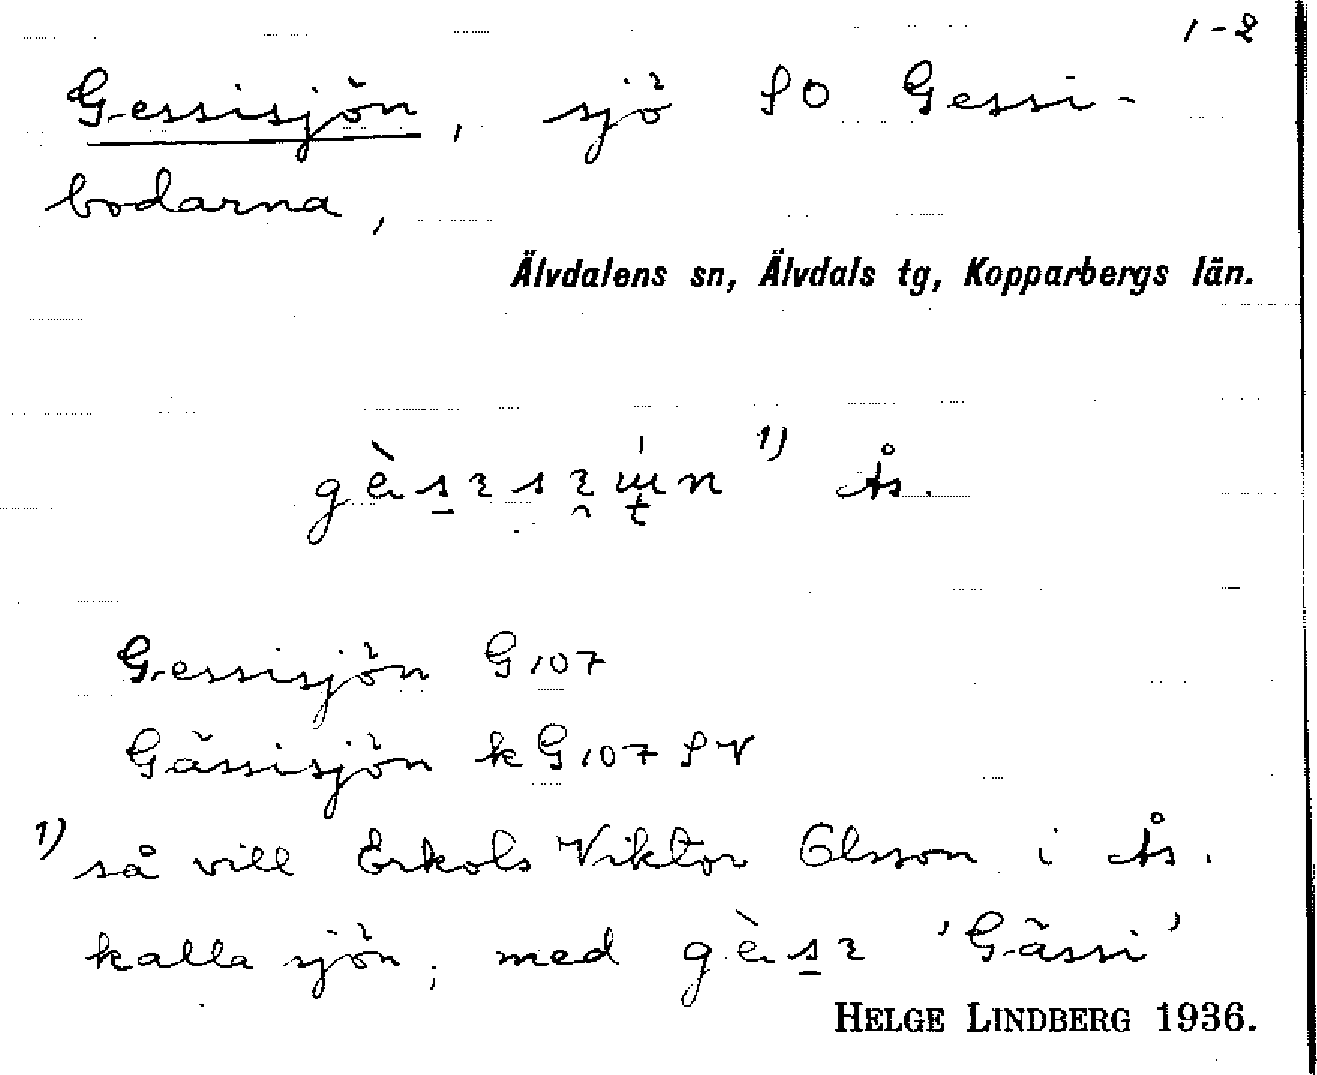 1-2
Gessisjön, sjö SO Gessi-
bodarna,
Älvdalens sn, Älvdals tg, Kopparbergs län.
1) Ås.
Gessisjön G107
Gässisjön kG107 SV
1) så vill Erkols Viktor Olsson i Ås.
kalla sjön, med 'Gässi'
HELGE LINDBERG 1936.